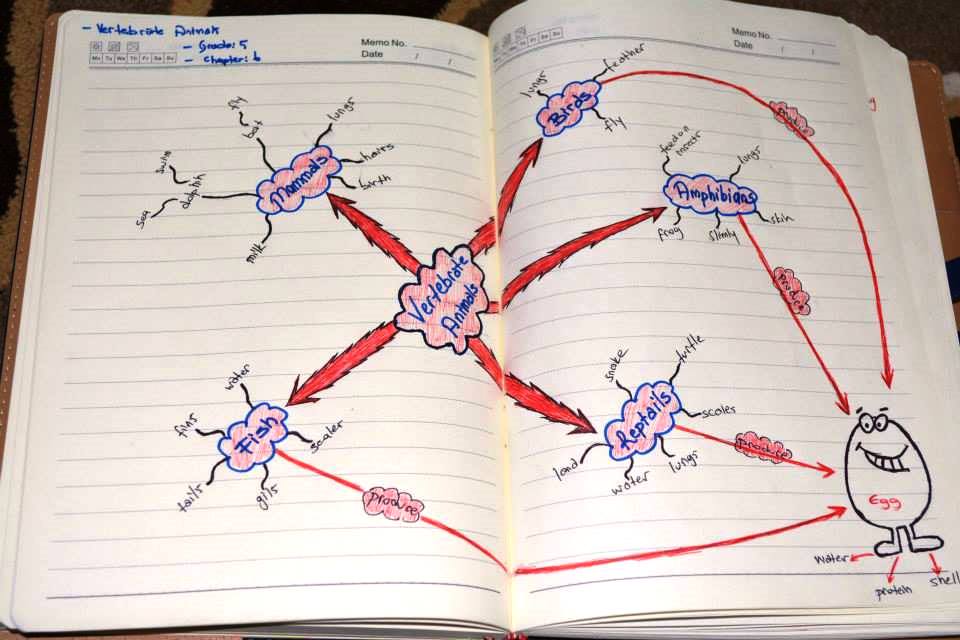 - Vertebrate Animals
- Grade: 5
- Chapter: 6
Mo Tu We Th Fr Sa Su
Memo No.
Date / /
Memo No.
Date / /
Vertebrate
Animals
Mammals
fly
bat
lungs
hairs
birth
milk
dolphin
swim
sea
Birds
lungs
feather
fly
produce
Amphibians
feed on
insects
lungs
skin
slimly
frog
produce
Reptails
snake
turtle
scales
lungs
water
land
produce
Fish
water
fins
tails
gills
scales
produce
Egg
water
protein
shell